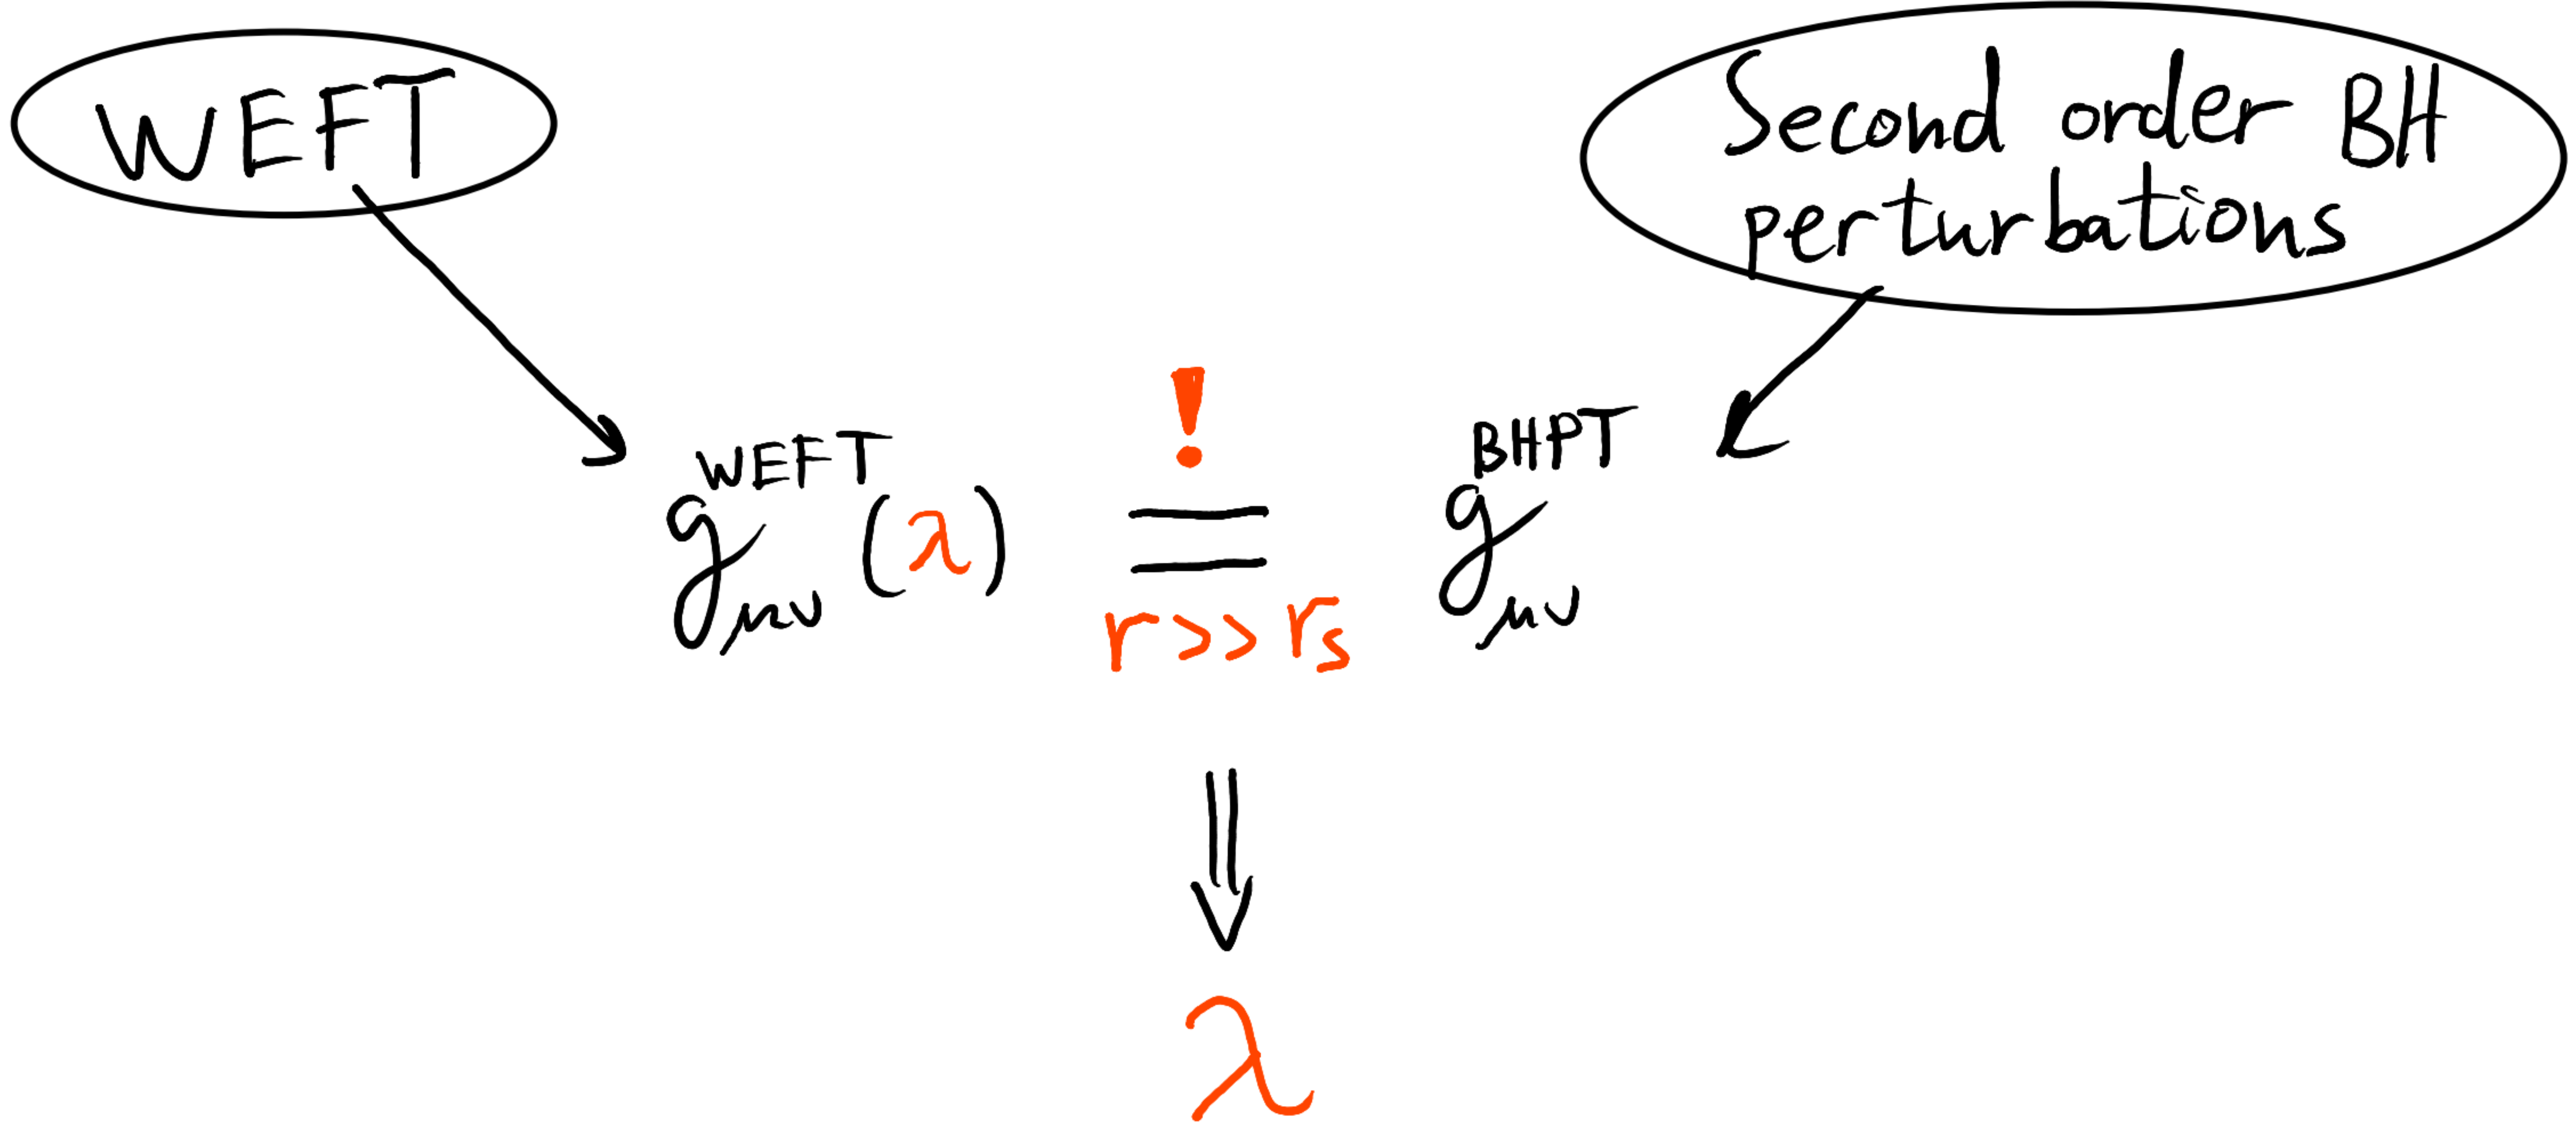 WEFT
Second order BH
perturbations
g_{μν}^{WEFT}(λ) =^{!}_{r>>r_s} g_{μν}^{BHPT}
⇓
λ